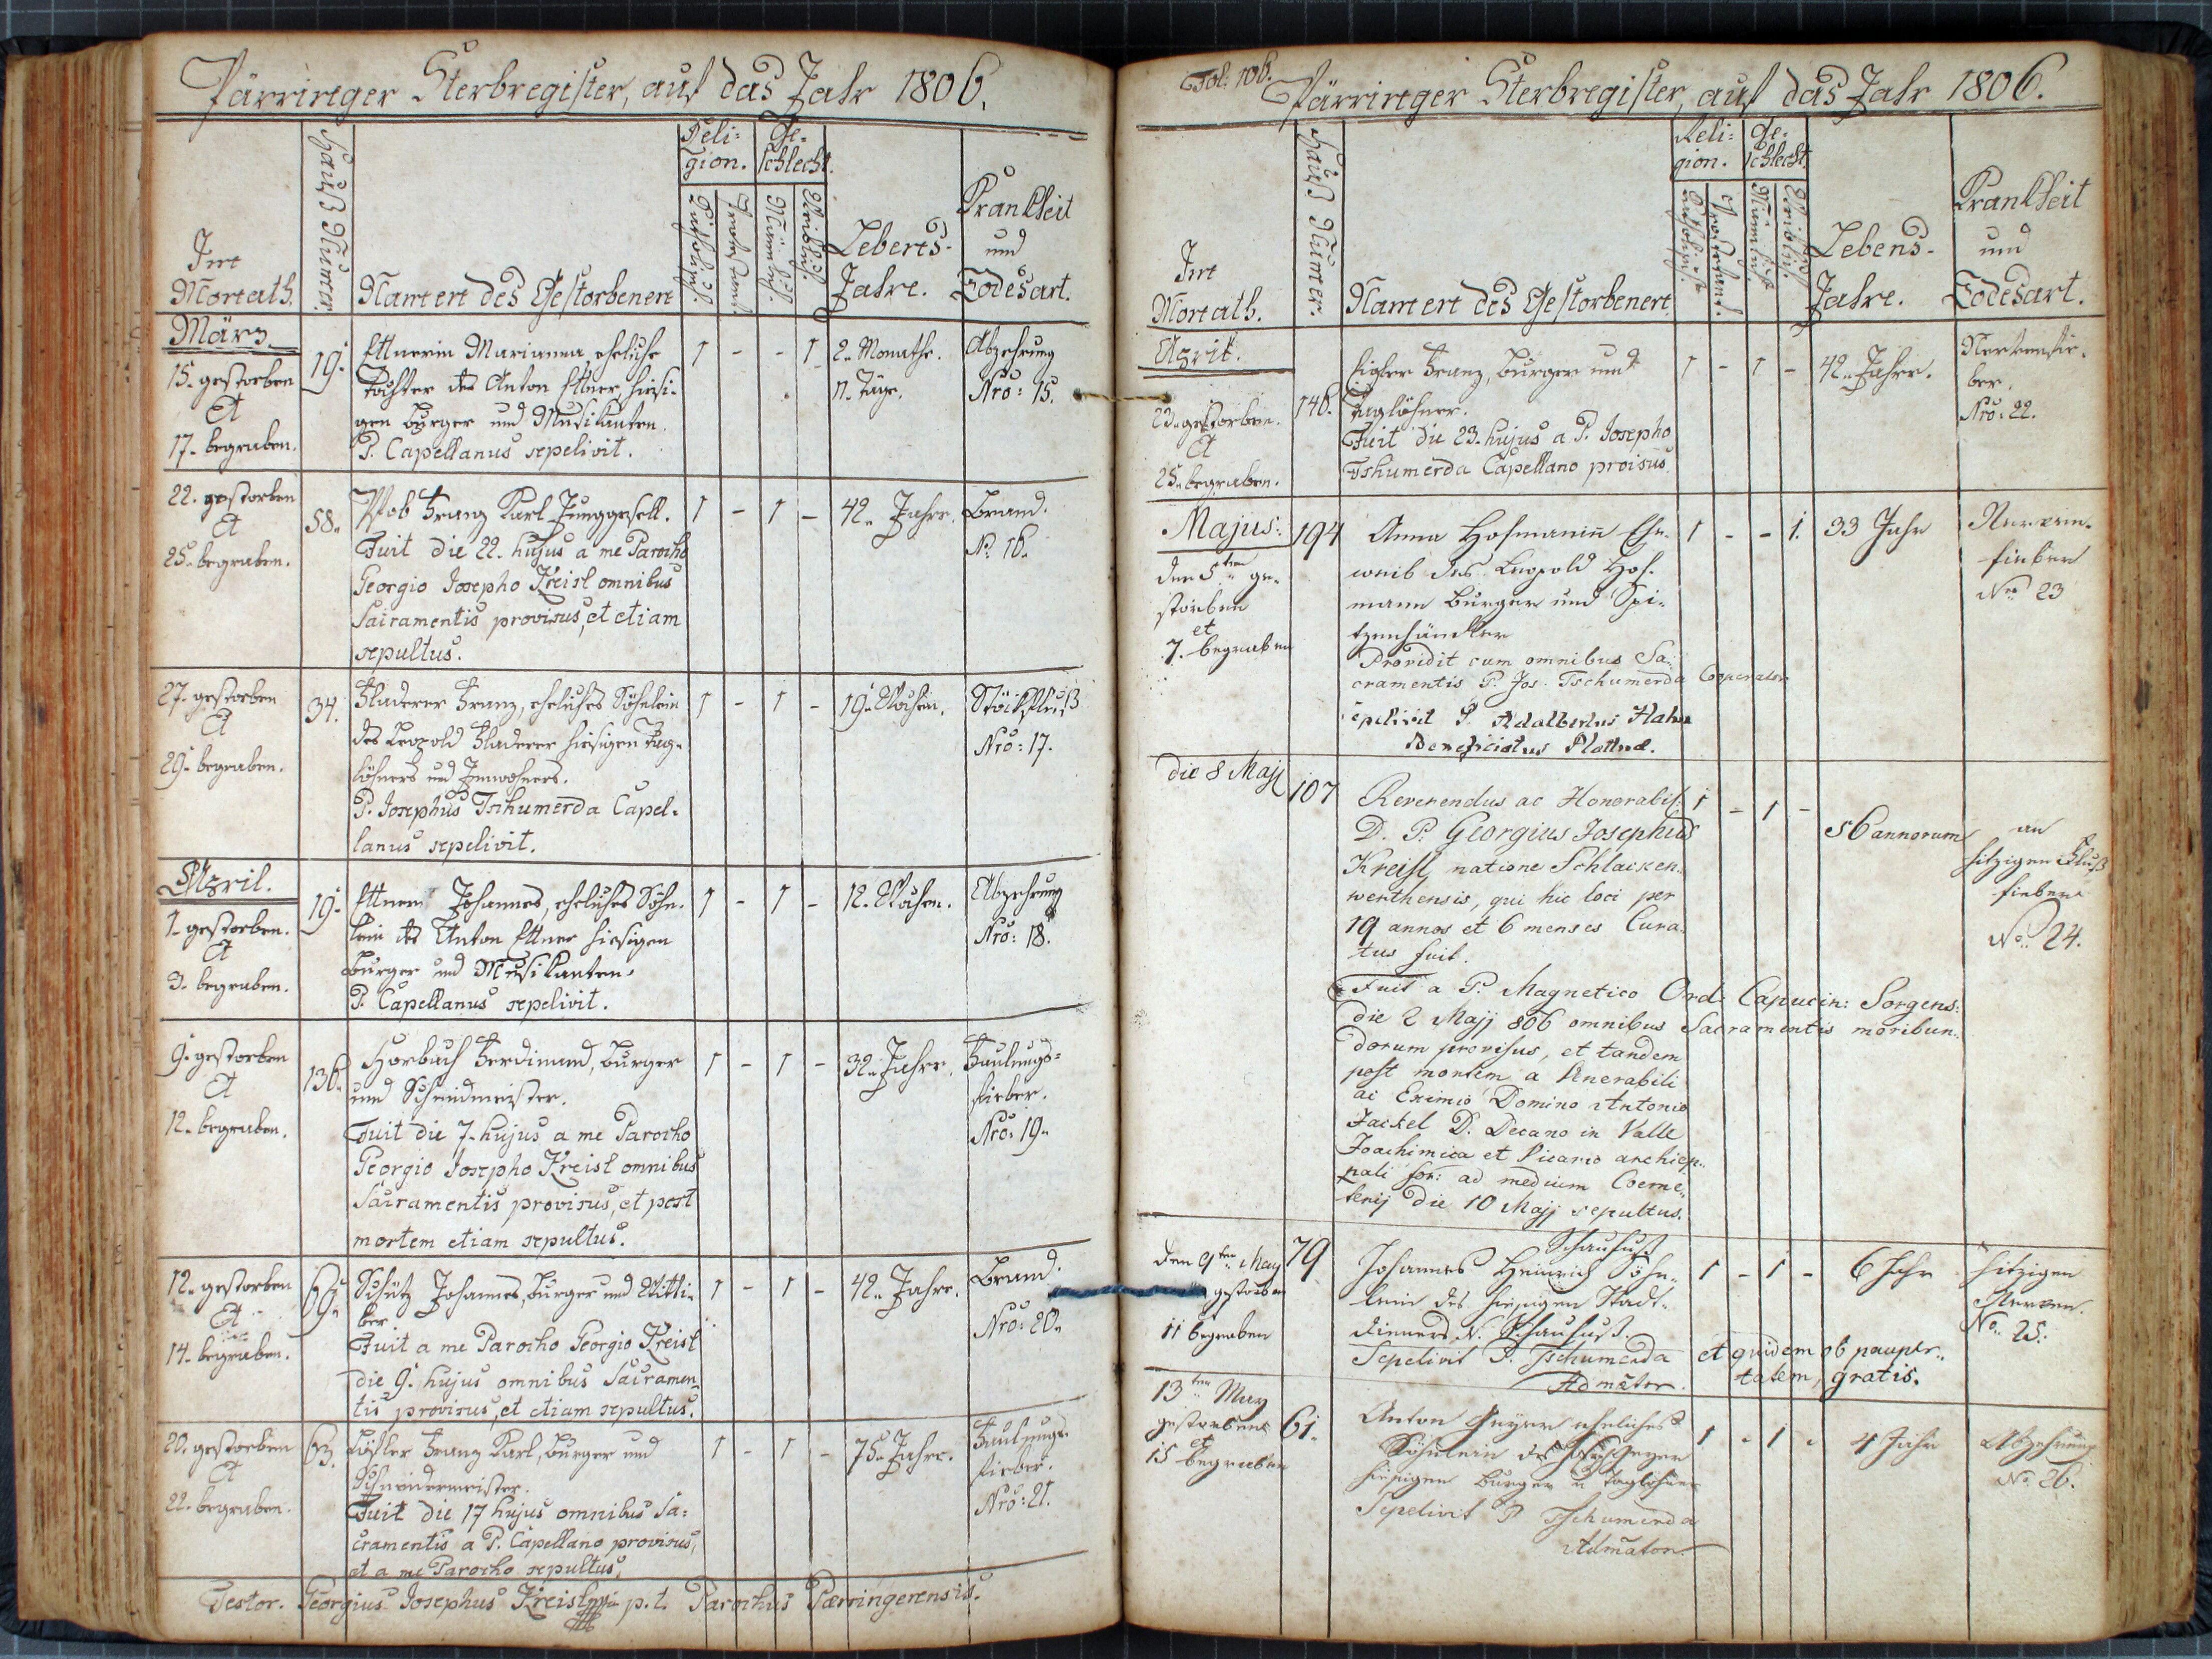 Pärringer Sterbregister, auf das Jahr 1806.
Reli=
gion.
Ge=
schlecht.
Im
Monath.
Hauß Numer.
Namen des Gestorbenen
Katholisch.
Protestant.
Männlich
Weiblich.
Lebens-
Jahre.
Krankheit
und
Todesart.
März.
15. gestorben
Et
17. begraben.
19.
Ettnerin Marianna, eheliche
Tochter des Anton Ettner, hiesi-
gen Burger und Musikanten.
P. Capellanus sepelivit.
1 - - 1
2. Monathe.
11. Täge.
Abzehrung
Nro: 15.
22. gestorben
Et
25. begraben.
58.
Wob Franz Karl Junggesell.
Fuit die 22. hujus a me Parocho
Georgio Josepho Kreisl omnibus
Sacramentis provisus, et etiam
sepultus.
1 - 1 -
42. Jahre.
Brand.
N: 16.
27. gestorben
Et
29. begraben.
34.
Bladerer Franz, eheliches Söhnlein
des Leopold Bladerer hiesigen Tag-
löhners und Innwohners.
P. Josephus Tschumerda Capel-
lanus sepelivit.
1 - 1 -
19. Wochen.
Stöckfluß
Nro: 17.
April.
1. gestorben.
Et
3. begraben.
19.
Ettner Johannes, eheliches Söhn-
lein des Anton Ettner hiesigen
Burger und Musikanten.
P. Capellanus sepelivit.
1 - 1 -
12. Wochen.
Abzehrung
Nro: 18.
9. gestorben
Et
12. begraben.
136.
Horbach Ferdinand, Burger
und Schmidmeister.
Fuit die 7. hujus a me Parocho
Georgio Josepho Kreisl omnibus
Sacramentis provisus, et post
mortem etiam sepultus.
1 - 1 -
32. Jahre.
Faulungs=
fieber.
Nro: 19.
12. gestorben
Et
14. begraben.
Schütz Johannes, Burger und Witti-
ber.
Fuit a me Parocho Georgio Kreisl
die 9. hujus omnibus Sacramen-
tis provisus, et etiam sepultus.
1 - 1 -
42. Jahre.
Brand.
Nro: 20.
20. gestorben
Et
22. begraben.
63.
Franz Karl, Burger und
Schneidermeister.
Fuit die 17 hujus omnibus Sa=
cramentis a P. Capellano provisus,
et a me Parocho sepultus.
1 - 1 -
75. Jahre.
Faulungs-
fieber.
Nro: 21.
Testor. Georgius Josephus Kreisl p.t. Parochus Pærringerensis.
Fol: 106.
Pärringer Sterbregister, auf das Jahr 1806.
Reli=
gion.
Ge-
schlecht
Im
Monath.
Hauß Numer.
Namen des Gestorbenen
Katholisch
Protestant.
Männlich
Weiblich
Lebens-
Jahre.
Krankheit
und
Todesart.
April.
23. gestorben.
Et
25. begraben.
146.
Franz, Burger und
Taglöhner.
Fuit die 23. hujus a P. Josepho
Tshumerda Capellano proisus.
1 - 1 -
42. Jahre.
Nervenfie-
ber.
Nro: 22.
Majus:
den 5ten ge-
storben
et
7. begraben
194
Anna Hofmanin Ehe-
weib des Leopold Hof-
mann Burger und Spi-
tzenhändler
Providit cum omnibus Sa-
cramentis P. Jos. Tschumerda Cooperator
sepelivit P. Adalbertus Hahn
Beneficiatus Plattnæ.
1 - - 1.
33 Jahr
Nerven-
fieber
Nro 23
die 8 Maji
107
Reverendus ac Honorabil:
D. P. Georgius Josephus
Kreisl, natione Schlacken-
werthensis, qui hic loci per
19 annos et 6 menses Cura-
tus fuit.
Fuit a P. Magnetico Ord. Capucin: Sorgens:
die 2 Maji 806 omnibus Sacramentis moribun-
dorum provisus, et tandem
post mortem a Venerabili
ac Eximio Domino Antonio
Jackel D. Decano in Valle
Joachimica et Vicario archiep-
pali for: ad medium Coeme-
terij die 10 Maji sepultus.
1 - 1 -
56 annorum
an
hitzigen Fluß
fieber
No. 24.
Den 9ten May
gestorben
11 begraben
79
Schauhuß
Johannes Heinrich Söhn-
lein des hiesigen Stadt-
dieners N. Schauhuß.
Sepelivit P. Tschumerda et quidem ob pauper-
Admator. tatem, gratis.
1 - 1 -
6 Jahr
hitzigen
Nerven.
No. 25.
13ten May
gestorben
et
15 begraben
61.
Anton Geyer eheliches
Söhnlein des Geyer
hiesigen Burger u Taglöhner
Sepelivit P Tschumerda
Admator.
1 - 1 -
4 Jahr
Abzehrung
No. 26.